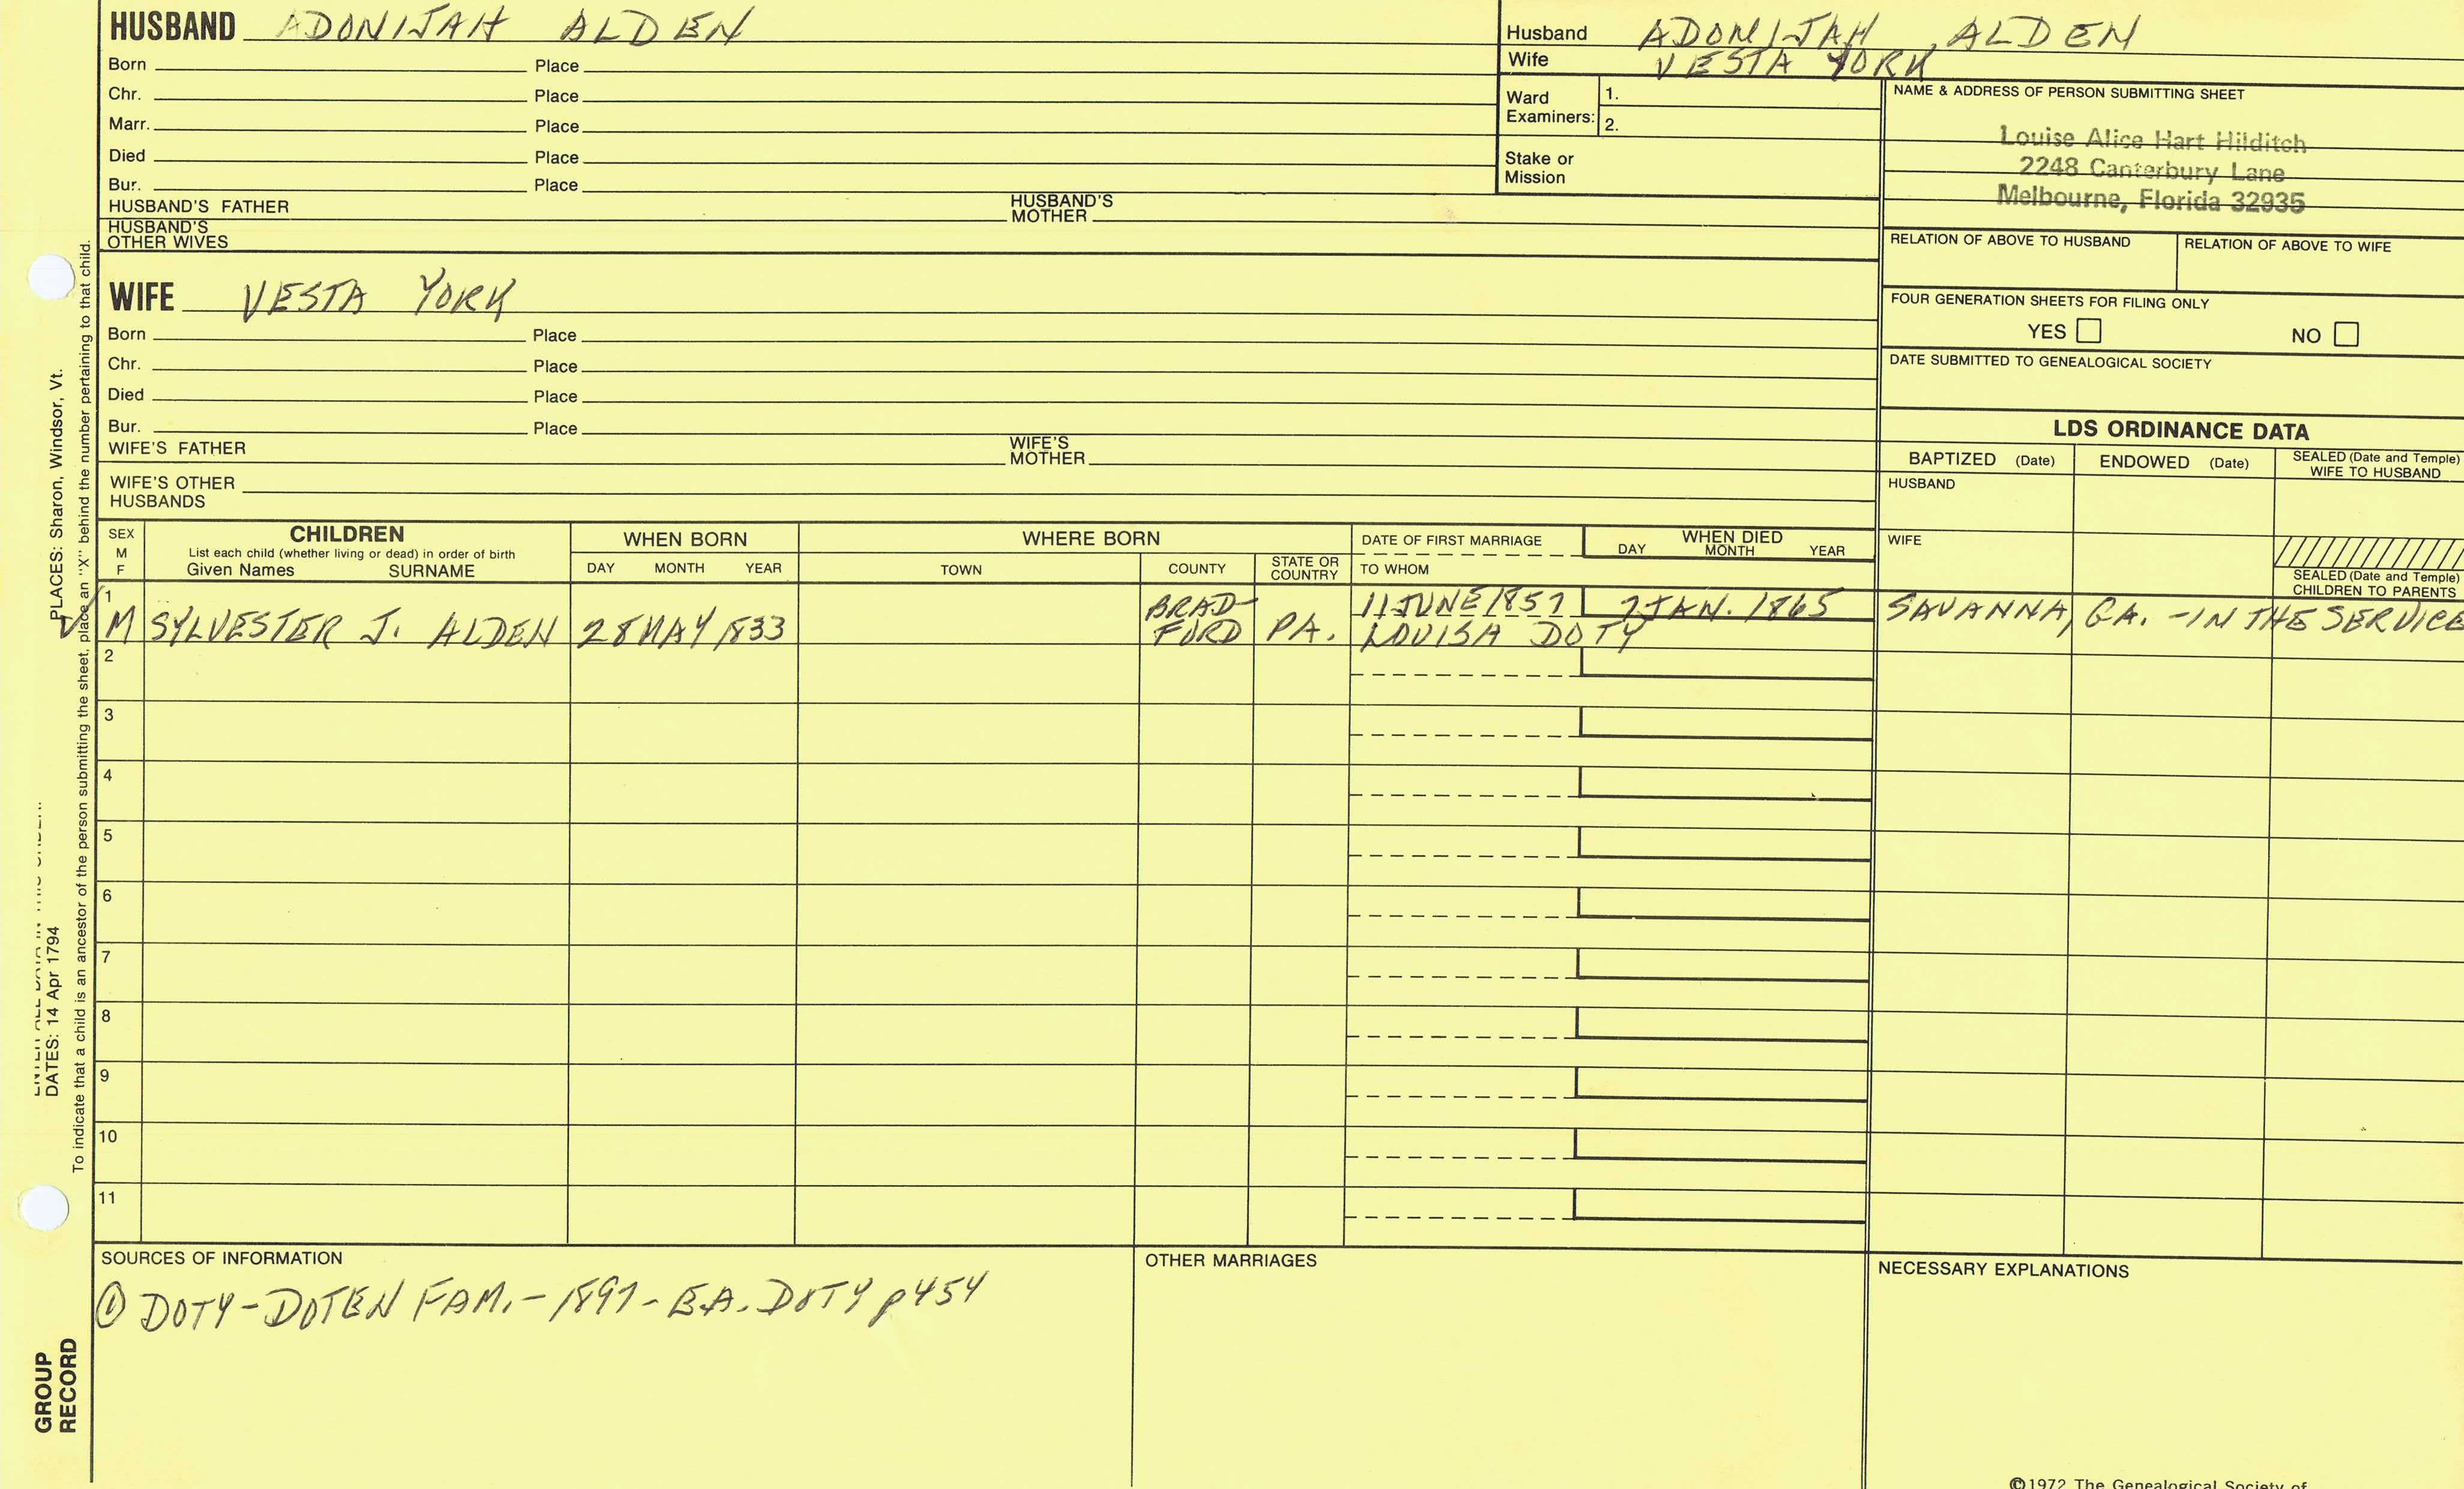 HUSBAND ADONIJAH ALDEN
Born Place
Chr. Place
Marr. Place
Died Place
Bur. Place
HUSBAND'S FATHER HUSBAND'S MOTHER
HUSBAND'S OTHER WIVES
Husband ADONIJAH ALDEN
Wife VESTA YORK
Ward Examiners: 1.
2.
Stake or Mission
NAME & ADDRESS OF PERSON SUBMITTING SHEET
Louise Alice Hart Hilditch
2248 Canterbury Lane
Melbourne, Florida 32935
RELATION OF ABOVE TO HUSBAND RELATION OF ABOVE TO WIFE
FOUR GENERATION SHEETS FOR FILING ONLY
YES NO
DATE SUBMITTED TO GENEALOGICAL SOCIETY
WIFE VESTA YORK
Born Place
Chr. Place
Died Place
Bur. Place
WIFE'S FATHER WIFE'S MOTHER
WIFE'S OTHER HUSBANDS
LDS ORDINANCE DATA
BAPTIZED (Date) ENDOWED (Date) SEALED (Date and Temple) WIFE TO HUSBAND
HUSBAND
WIFE
SEALED (Date and Temple) CHILDREN TO PARENTS
SEX M F
CHILDREN
List each child (whether living or dead) in order of birth
Given Names SURNAME
WHEN BORN
DAY MONTH YEAR
WHERE BORN
TOWN COUNTY STATE OR COUNTRY
DATE OF FIRST MARRIAGE
TO WHOM
WHEN DIED
DAY MONTH YEAR
1 M SYLVESTER J. ALDEN 28 MAY 1833 BRAD-FORD PA. 11 JUNE 1857 LOUISA DOTY 7 JAN. 1865 SAVANNA, GA. - IN THE SERVICE
2
3
4
5
6
7
8
9
10
11
SOURCES OF INFORMATION
① DOTY-DOTEN FAM. - 1897 - E.A. DOTY p454
OTHER MARRIAGES
NECESSARY EXPLANATIONS
©1972 The Genealogical Society of
PLACES: Sharon, Windsor, Vt.
DATES: 14 Apr 1794
To indicate that a child is an ancestor of the person submitting the sheet, place an "X" behind the number pertaining to that child.
GROUP
RECORD